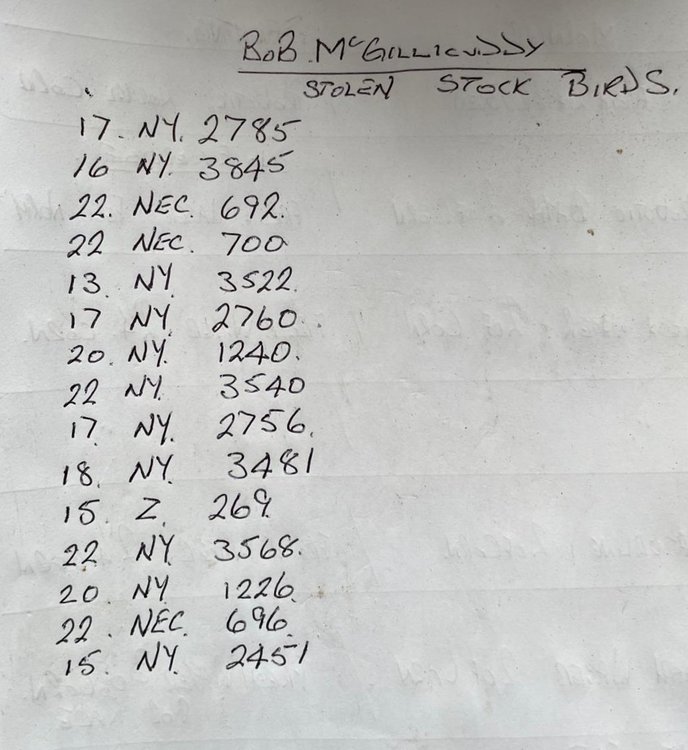 BOB. McGILLICUDDY
STOLEN STOCK BIRDS.
17. NY. 2785
16 NY. 3845
22. NEC. 692.
22 NEC. 700
13. NY. 3522.
17 NY. 2760.
20. NY. 1240.
22 NY. 3540
17. NY. 2756.
18. NY. 3481
15. Z. 269.
22 NY 3568.
20. NY 1226.
22. NEC. 696.
15. NY. 2451